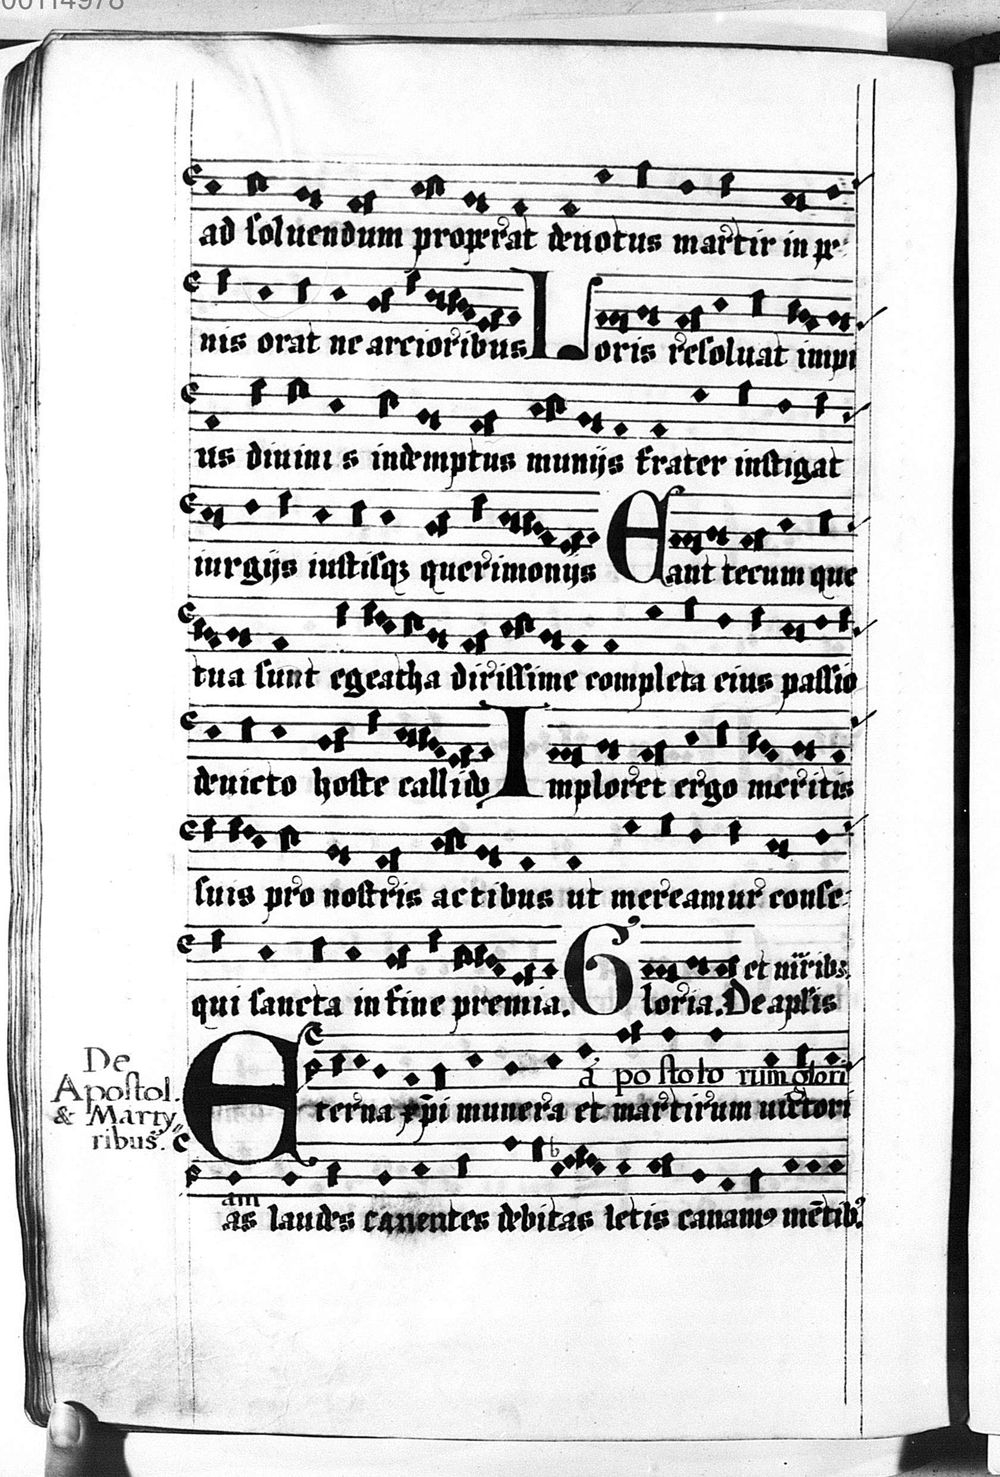 00114978
ad soluendum properat deuotus martir in pe
nis orat ne arcioribus Loris resoluat impi
us diuinis indemptus munijs frater instigat
iurgijs iustisqȝ querimonijs Eant tecum que
tua sunt egeatha dirissime completa eius passio
deuicto hoste callido Imploret ergo meritis
suis pro nostris actibus ut mereamur conse
qui sancta in fine premia. Gloria. et nirib9. De aplis
De
Apostol.
& Marty
ribus.
a postolo rum glori
Eterna xp̄i munera et martirum uictori
am
as laudes canentes debitas letis canam9 mētib9